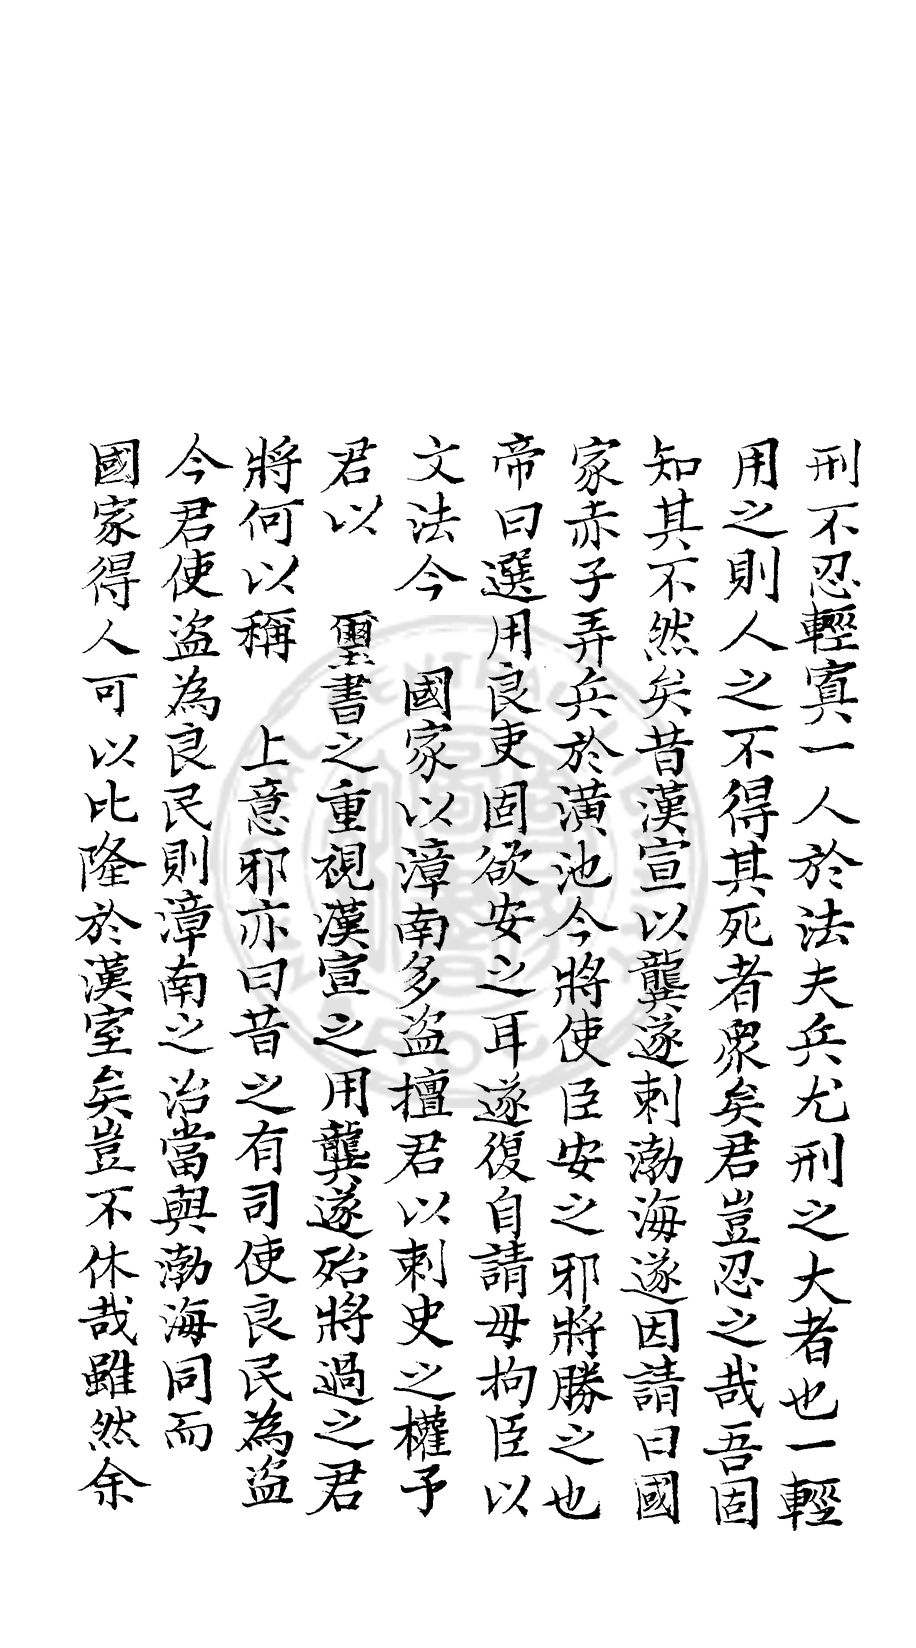 刑不忍輕寘一人於法夫兵尤刑之大者也一輕
用之則人之不得其死者衆矣君豈忍之哉吾固
知其不然矣昔漢宣以龔遂刺渤海遂因請曰國
家赤子弄兵於潢池今將使臣安之邪將勝之也
帝曰選用良吏固欲安之耳遂復自請毋拘臣以
文法今　國家以漳南多盜擅君以刺史之權予
君以　璽書之重視漢宣之用龔遂殆將過之君
將何以稱　上意邪亦曰昔之有司使良民為盜
今君使盜為良民則漳南之治當與渤海同而
國家得人可以比隆於漢室矣豈不休哉雖然余